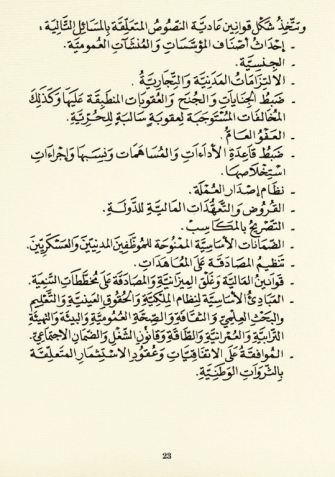 وتتّخذ شكل قوانين عاديّة النّصوص المتعلّقة بالمسائل التّالية :
- إحداث أصناف المؤسّسات والمنشآت العموميّة.
- الجنسيّة.
- الالتزامات المدنيّة والتّجاريّة.
- ضبط الجنايات والجنح والعقوبات المنطبقة عليها وكذلك
المخالفات المستوجبة لعقوبة سالبة للحرّيّة.
- العفو العامّ.
- ضبط قاعدة الأداءات والمساهمات ونسبها وإجراءات
استخلاصها.
- نظام إصدار العملة.
- القروض والتّعهّدات الماليّة للدّولة.
- التّصريح بالمكاسب.
- الضّمانات الأساسيّة الممنوحة للموظّفين المدنيّين والعسكريّين.
- تنظيم المصادقة على المعاهدات.
- قوانين الماليّة وغلق الميزانيّة والمصادقة على مخطّطات التّنمية.
- المبادئ الأساسيّة لنظام الملكيّة والحقوق العينيّة والتّعليم
والبحث العلميّ والثّقافة والصّحّة العموميّة والبيئة والتّهيئة
التّرابيّة والعمرانيّة والطّاقة وقانون الشّغل والضّمان الاجتماعيّ.
- الموافقة على الاتّفاقيّات وعقود الاستثمار المتعلّقة
بالثّروات الوطنيّة.
23